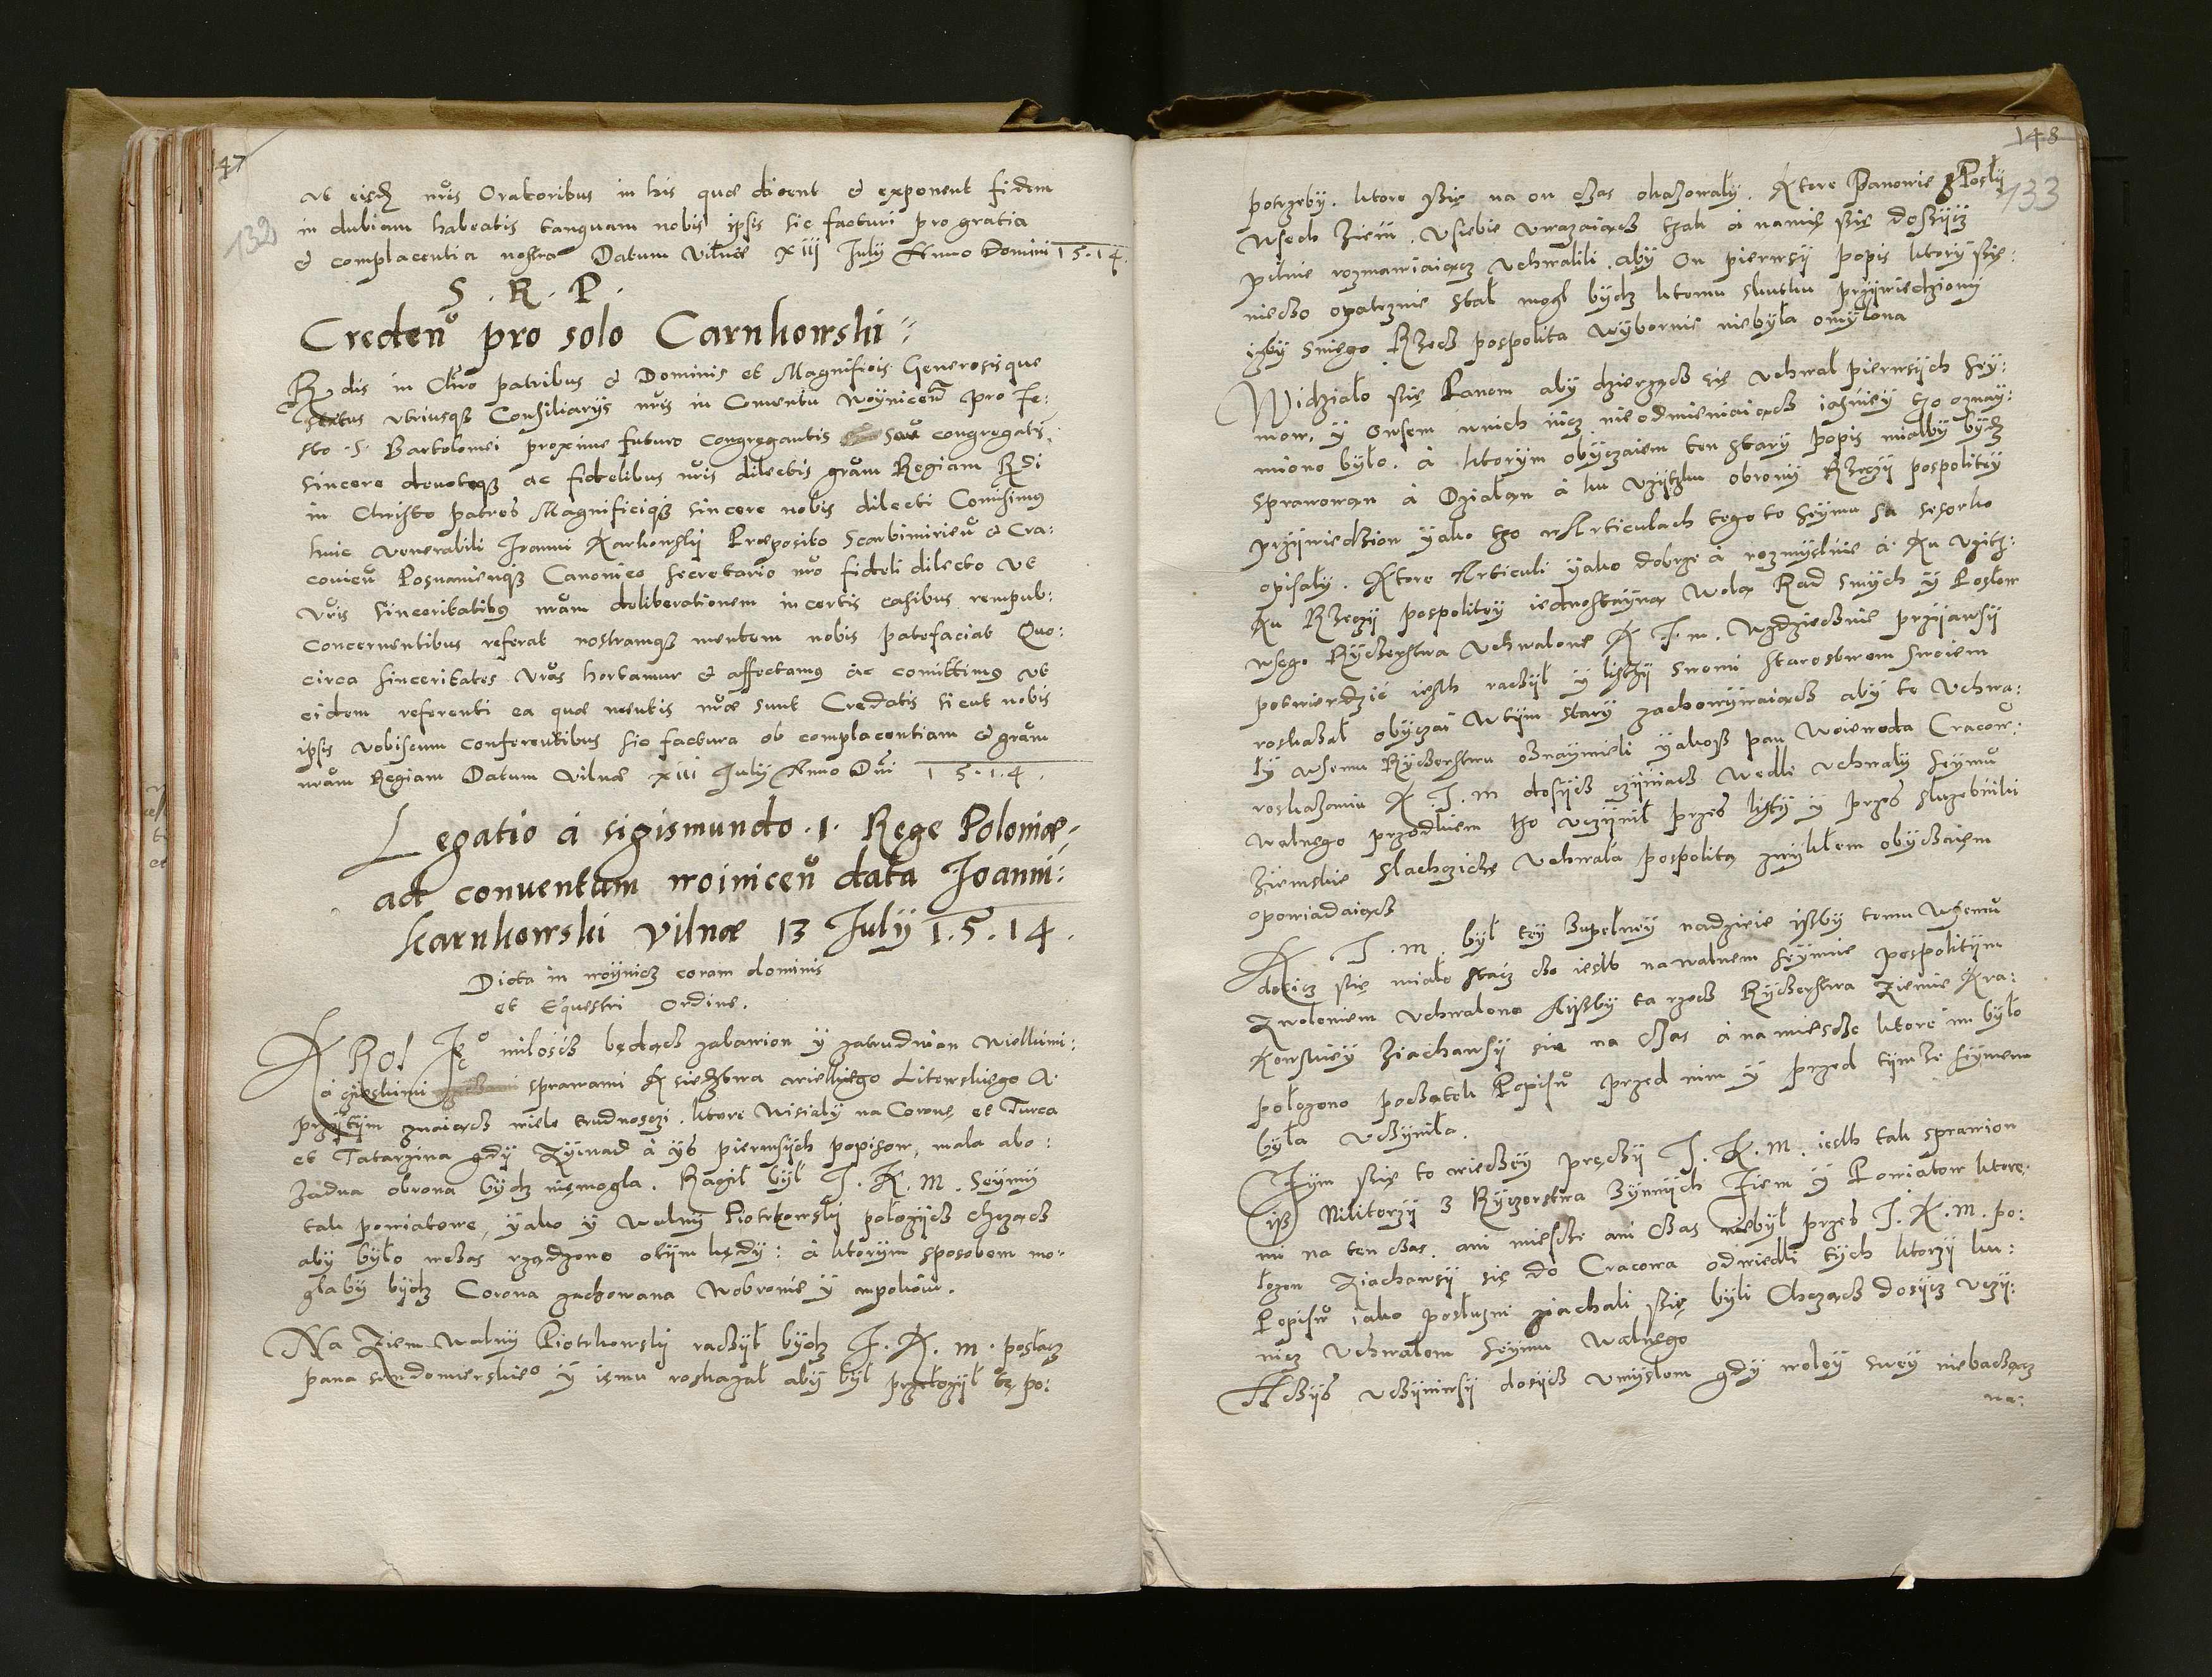 47
132
ut eisdem nris Oratoribus in his quæ dicent & exponent fidem
in dubiam habeatis tanquam nobis ipsis sic facturi pro gratia
& complacentia nostra Datum Vilnæ xiii July Anno Domini 1 5 . 1 4 .
S . R . P .
Creden pro solo Carnkowski
Rdis in Chro patribus & Dominis et Magnificis Generosisque
status utriusque Consiliarys nris in Conventu Woynicen pro fe:
sto . S . Bartolomei proxime futuro congregantis seu congregatis
sincere devoteque ac fidelibus nris dilectis gram Regiam Rdi
in Christo patres Magnificique sincere nobis dilecti Comisimus
huic venerabili Joanni Karkowsky Præposito Scarbimirien & Cra:
covien Posnanienque Canonico secretario nro fideli dilecto ut
vris sinceritatibus nram deliberationem in certis casibus rempub:
concernentibus referat nostramque mentem nobis patefaciat Quo:
circa sinceritates vras hortamur & affectamus ac comittimus ut
eidem referenti ea quæ mentis nræ sunt Credatis sicut nobis
ipsis vobiscum conferentibus sic factura ob complacentiam & gram
nram Regiam Datum Vilnæ xiii July Anno Dni 1 5 . 1 . 4 .
Legatio á sigismundo . 1 . Rege Poloniæ
ad conventum woinicen data Joanni:
karnkowski Vilnæ 13 July 1 . 5 . 1 4 .
Dicta in woynicz coram dominis
et Equestri ordine .
KRol Je° miloscz będącz zabawion y zatrudnion wielkimi:
á cięskimi sprawami Ksiedztwa wielkiego Litewskiego A
przytym znaiącz wiele trudnosczi . ktore wisiały na Coronę et Turca
et Tatarzina gdy żywad á ys pierwssych popisow, mała abo:
żadna obrona bydz niemogla . Raczil był J . K . M . Seymy
tak powiatowe, yako y walny Piotrkowsky połozycz chcząc
aby było wczas rządzono otym kędy : á ktorym sposobem mo:
głaby bydz Corona zachowana wobronie y wpokoiu .
Na Ziem walny Piotrkowsky raczył bydz J . K . m . posłacz
pana sandomierskie° y iemu roskazał aby był przełozył tę po:
148
133
potrzeby . ktore ssię na on czas okazowały . Ktore Panowie y Posly
wssech Ziem . usiebie uwazaiącz tak á namię ssię dossycz
pilnie rozmawiaiącz uchwalili aby On pierwssy popis ktory ssię:
nieczo opatrznie stał mogł bydz ktemu skutku przywiedziony
izby snięgo Rzecz pospolita wybornie niebyła omylona
Widziało ssię Panom aby dzierzącz się uchwał pierwssych sey:
mow, y owsem wnich nicz nieodmieniaiącz iasniey tho oznay:
miono było . á ktorym obyczaiem ten stary popis miałby bydz
sprawowan á Działan á ku uzytku obrony Rzeczy pospolitey
przywiedzion yako tho wArticulach tegoto seymu sa sesorko
opisały . Ktore Articuli yako dobrze á rozmyslnie á ku uzith:
ku Rzeczy pospolitey iednostayną wolą Rad swych y Posłow
wssego Ryczerstwa uchwalone K J . m . wdziecznie przyiawssy
potwierdzić iesth raczył y listhy swemi starostwom swoiem
roskazał obyczai wtym stary zachowywaiącz aby te uchwa:
ły wssemu Ryczerstwu oznaymieli yakoss pan Woiewoda Cracow .
roskazaniu K . J . m dosycz czyniącz wedle uchwały seymu
walnego przodkiem tho uczynił przes listy y przes sluzebniki
ziemskie slachczicze uchwała pospolitą zwykłem obyczaiem
opowiadaiącz
K . J . m . był tey zupełney nadzieie issby temu wssemu
dosicz ssię miało stacz czo iesth na walnem seymie pospolitym
zwoleniem uchwalono Aissby ta rzecz Ryczerstwa ziemie Kra:
kowskiey ziachawssy się na czas á na miesdce ktore im było
połozono początek Popisu przed nim y przed tymże seymem
była uczyniła .
Czym ssię to wiedzey prędzy J . K . m . iesth tak sprawion
iss Niktorzy z Ryczerstwa zynnych Ziem y Powiatow ktore
ni na ten czas . ani miesdce ani czas niebył przes J . K . M . po:
łozon ziachawssy się do Cracowa odwiedli tych ktorzy ku:
Popisu iako posłuszni ziachali ssię byli Chcząc dosycz uczy:
nicz uchwałom seymu walnego
Aczys uczyniwssy dosycz umysłom gdy woley swey niebaczącz
na: